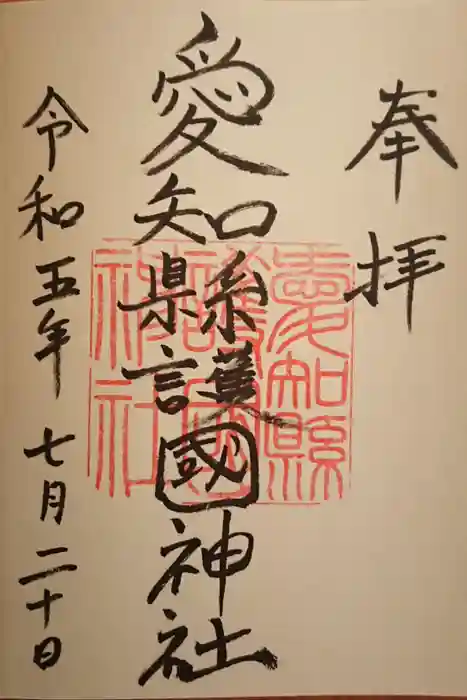 奉拝
愛知縣護國神社
愛知縣
護國
神社
令和五年七月二十日